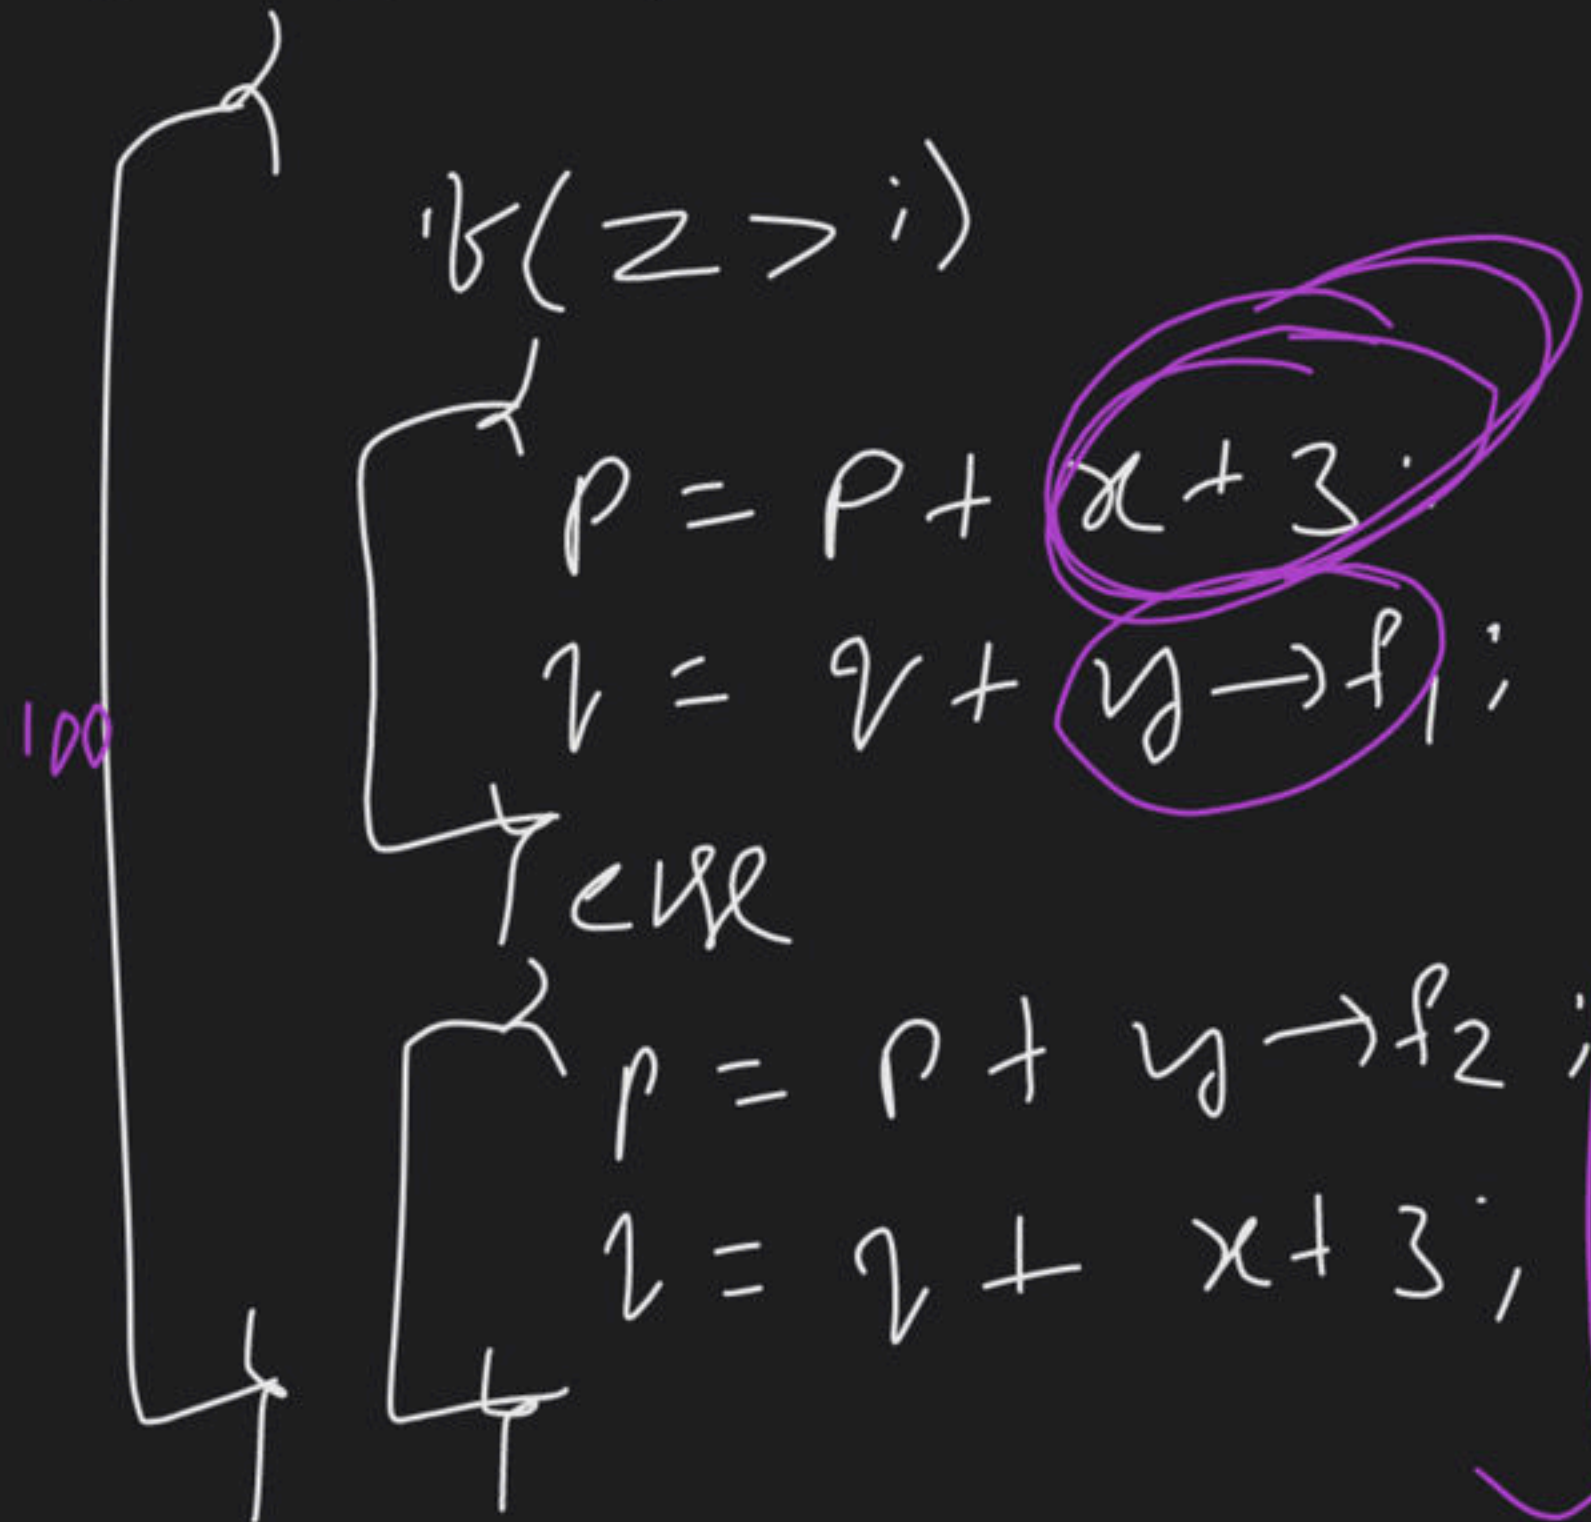 {
if(z > i)
{
p = p + x + 3;
q = q + y → f1;
100
} else
{
p = p + y → f2;
q = q + x + 3;
}
}